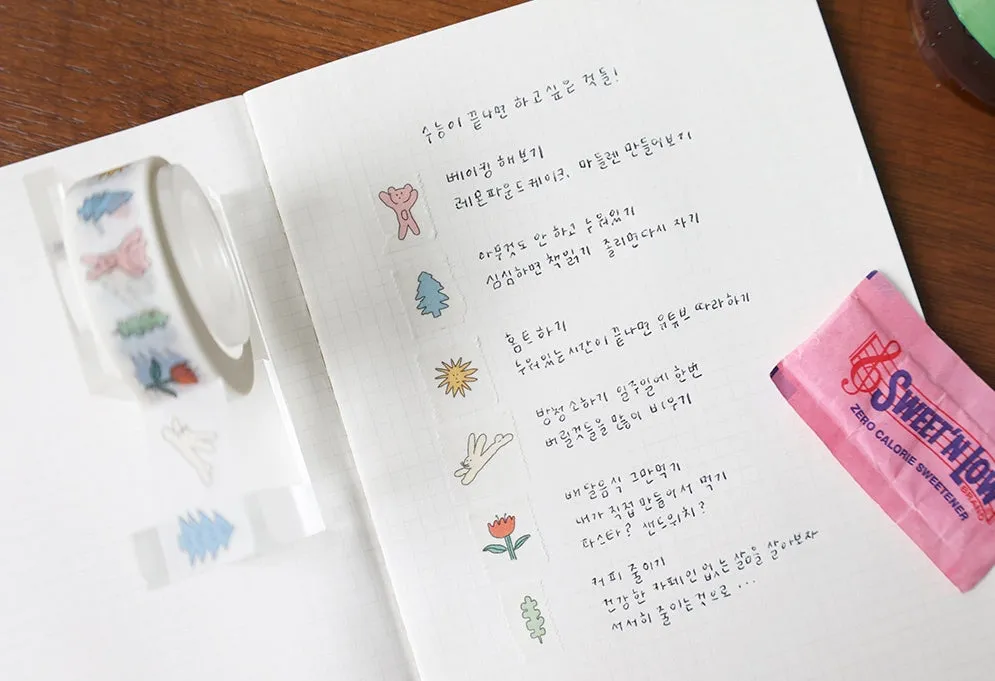 수능이 끝나면 하고싶은 것들!
베이킹 해보기
레몬파운드케이크, 마들렌 만들어보기
아무것도 안 하고 누워있기
심심하면 책읽기 졸리면다시 자기
홈트하기
누워있는시간이 끝나면 유튜브 따라하기
방청소하기 일주일에 한번
버릴것들을 많이 비우기
배달음식 그만먹기
내가 직접 만들어서 먹기
파스타? 샌드위치?
커피 줄이기
건강한 카페인 없는 삶을 살아보자
서서히 줄이는것으로 ...
SWEET'N LOW
BRAND
ZERO CALORIE SWEETENER